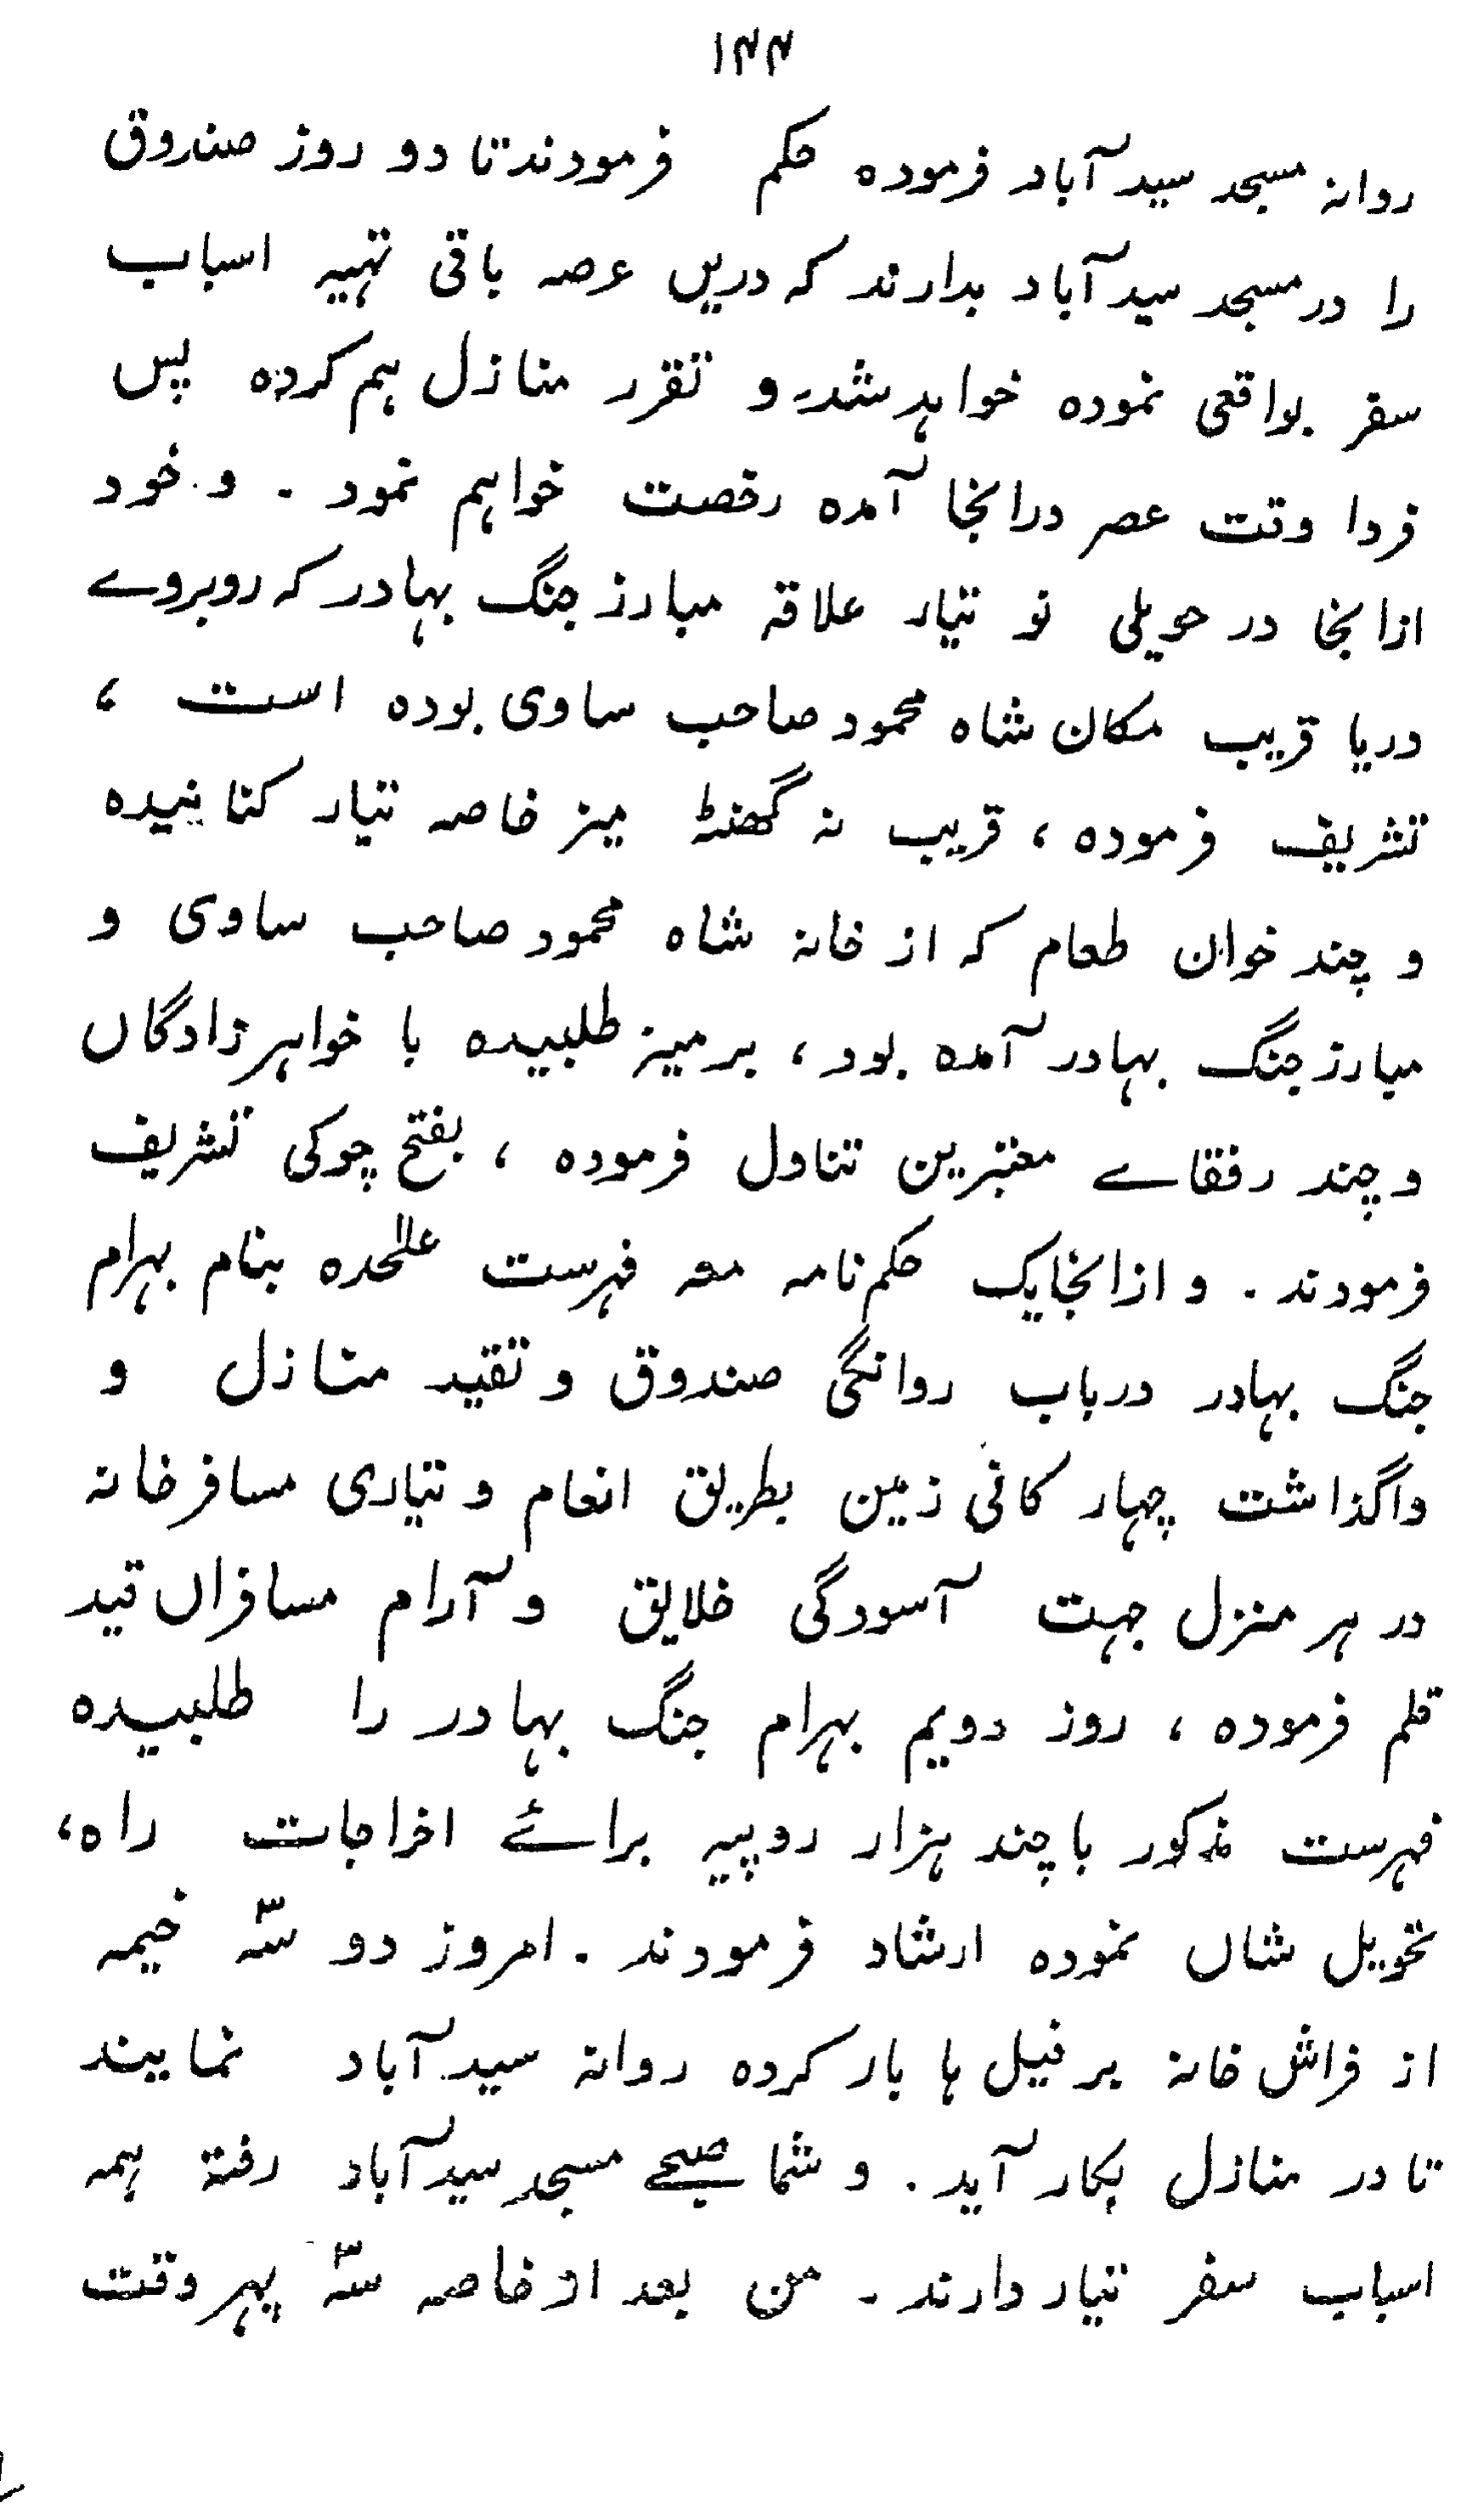 ۱۴۴
روانہ مسجد سید آباد فرمودہ حکم فرمودند تا دو روز صندوق
را در مسجد سید آباد بدارند کہ دریں عرصہ باقی تہیہ اسباب
سفر بواقعی نمودہ خواہد شد و تقرر منازل ہم کردہ پس
فردا وقت عصر درانجا آمدہ رخصت خواہم نمود ۔ و خود
ازانجا در حویلی نو تیار علاقہ مبارز جنگ بہادر کہ روبروے
دریا قریب مکان شاہ محمود صاحب ساوی بودہ است ،
تشریف فرمودہ ، قریب نہ گھنڈ میز خاصہ تیار کنانیدہ
و چند خوان طعام کہ از خانہ شاہ محمود صاحب ساوی و
مبارز جنگ بہادر آمدہ بود ، بر میز طلبیدہ با خواہر زادگاں
و چند رفقاے معتبرین تناول فرمودہ ، بفتح چوکی تشریف
فرمودند . و ازانجایک حکم نامہ معہ فہرست علٰحدہ بنام بہرام
جنگ بہادر درباب روانگی صندوق و تقید منازل و
واگذاشت چہار کانی زمین بطریق انعام و تیاری مسافر خانہ
در ہر منزل جہت آسودگی خلایق و آرام مسافراں قید
قلم فرمودہ ، روز دویم بہرام جنگ بہادر را طلبیدہ
فہرست مذکور با چند ہزار روپیہ برائے اخراجات راہ،
تحویل شاں نمودہ ارشاد فرمودند . امروز دو سہ خیمہ
از فراش خانہ بر فیل ہا بار کردہ روانہ سید آباد نمایند
تا در منازل بکار آید . و شما صبحے مسجد سید آباد رفتہ ہمہ
اسباب سفر تیار دارند ۔ من بعد از خاصہ سہ پہر وقت